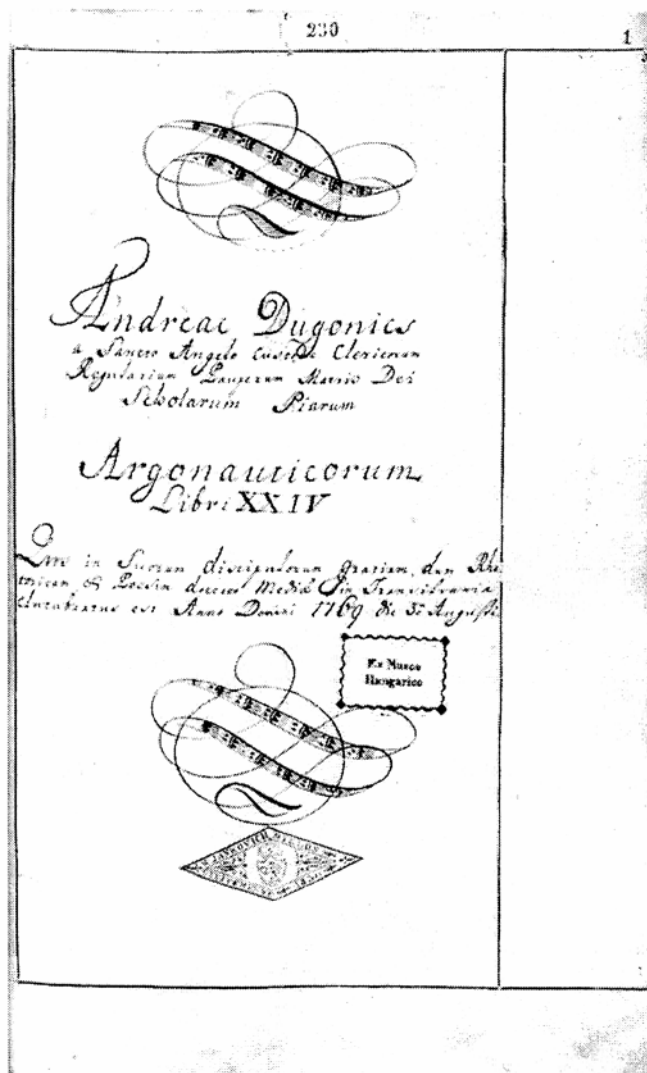 230
1
Andreae Dugonics
a Sancto Angelo Custode Clericorum
Regularium Pauperum Matris Dei
Scholarum Piarum
Argonauticorum
Libri XXIV
Quos in Suorum discipulorum gratiam, dum Rhe
toricam & Poesin doceret Mediae in Transilvania
elucubratus est Anno Domini 1769 die Augusti
Ex Museo
Hungarico